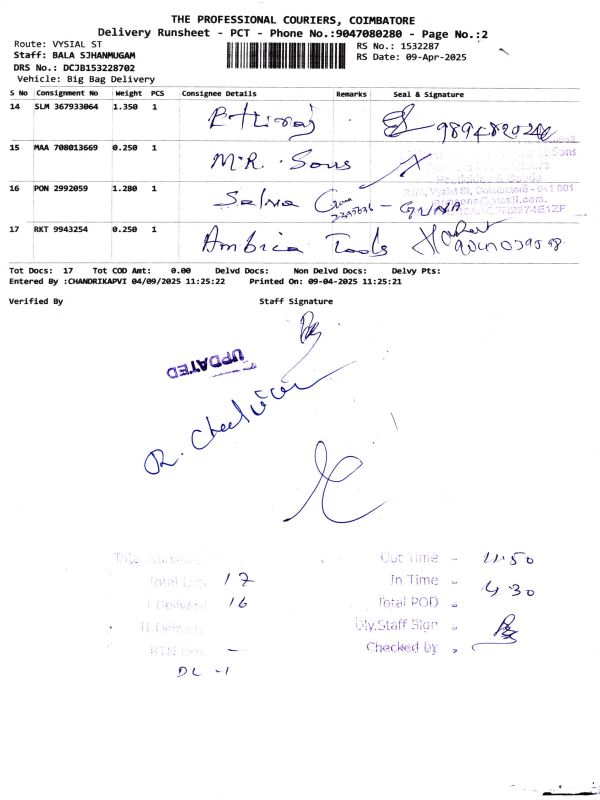 THE PROFESSIONAL COURIERS, COIMBATORE
Delivery Runsheet - PCT - Phone No.:9047080280 - Page No.:2
Route: VYSIAL ST
RS No.: 1532287
Staff: BALA SJHANMUGAM
RS Date: 09-Apr-2025
DRS No.: DCJB153228702
Vehicle: Big Bag Delivery
S No Consignment No Weight PCS Consignee Details Remarks Seal & Signature
14 SLM 367933064 1.350 1
15 MAA 708013669 0.250 1 M.R. Sons
16 PON 2992059 1.280 1 Selva
17 RKT 9943254 0.250 1 Ambica Tools
Tot Docs: 17 Tot COD Amt: 0.00 Delvd Docs: Non Delvd Docs: Delvy Pts:
Entered By :CHANDRIKAPVI 04/09/2025 11:25:22 Printed On: 09-04-2025 11:25:21
Verified By Staff Signature
UPDATED
Out Time - 11.50
In Time - 4.30
Total Drs 17
Total POD -
I Delivery 16
Dly.Staff Sign -
II Delivery
Checked by -
RTN Drs —
DL -1